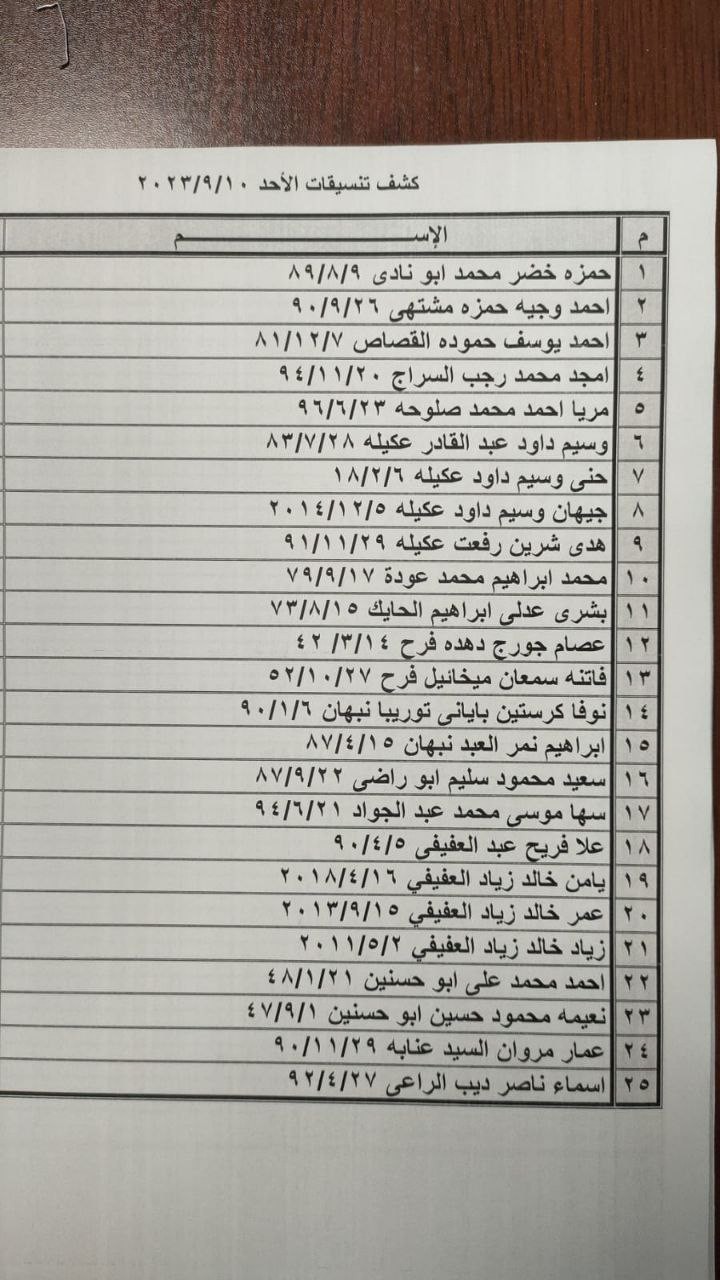 كشف تنسيقات الأحد ٢٠٢٣/٩/١٠
م الإســـــــــــــــــم
١ حمزه خضر محمد ابو نادى ٨٩/٨/٩
٢ احمد وجيه حمزه مشتهى ٩٠/٩/٢٦
٣ احمد يوسف حموده القصاص ٨١/١٢/٧
٤ امجد محمد رجب السراج ٩٤/١١/٢٠
٥ مريا احمد محمد صلوحه ٩٦/٦/٢٣
٦ وسيم داود عبد القادر عكيله ٨٣/٧/٢٨
٧ حنى وسيم داود عكيله ١٨/٢/٦
٨ جيهان وسيم داود عكيله ٢٠١٤/١٢/٥
٩ هدى شرين رفعت عكيله ٩١/١١/٢٩
١٠ محمد ابراهيم محمد عودة ٧٩/٩/١٧
١١ بشرى عدلى ابراهيم الحايك ٧٣/٨/١٥
١٢ عصام جورج دهده فرح ٤٢/٣/١٤
١٣ فاتنه سمعان ميخائيل فرح ٥٢/١٠/٢٧
١٤ نوفا كرستين باياني توريبا نبهان ٩٠/١/٦
١٥ ابراهيم نمر العبد نبهان ٨٧/٤/١٥
١٦ سعيد محمود سليم ابو راضى ٨٧/٩/٢٢
١٧ سها موسى محمد عبد الجواد ٩٤/٦/٢١
١٨ علا فريح عبد العفيفى ٩٠/٤/٥
١٩ يامن خالد زياد العفيفي ٢٠١٨/٤/١٦
٢٠ عمر خالد زياد العفيفي ٢٠١٣/٩/١٥
٢١ زياد خالد زياد العفيفي ٢٠١١/٥/٢
٢٢ احمد محمد على ابو حسنين ٤٨/١/٢١
٢٣ نعيمه محمود حسين ابو حسنين ٤٧/٩/١
٢٤ عمار مروان السيد عنابه ٩٠/١١/٢٩
٢٥ اسماء ناصر ديب الراعى ٩٢/٤/٢٧